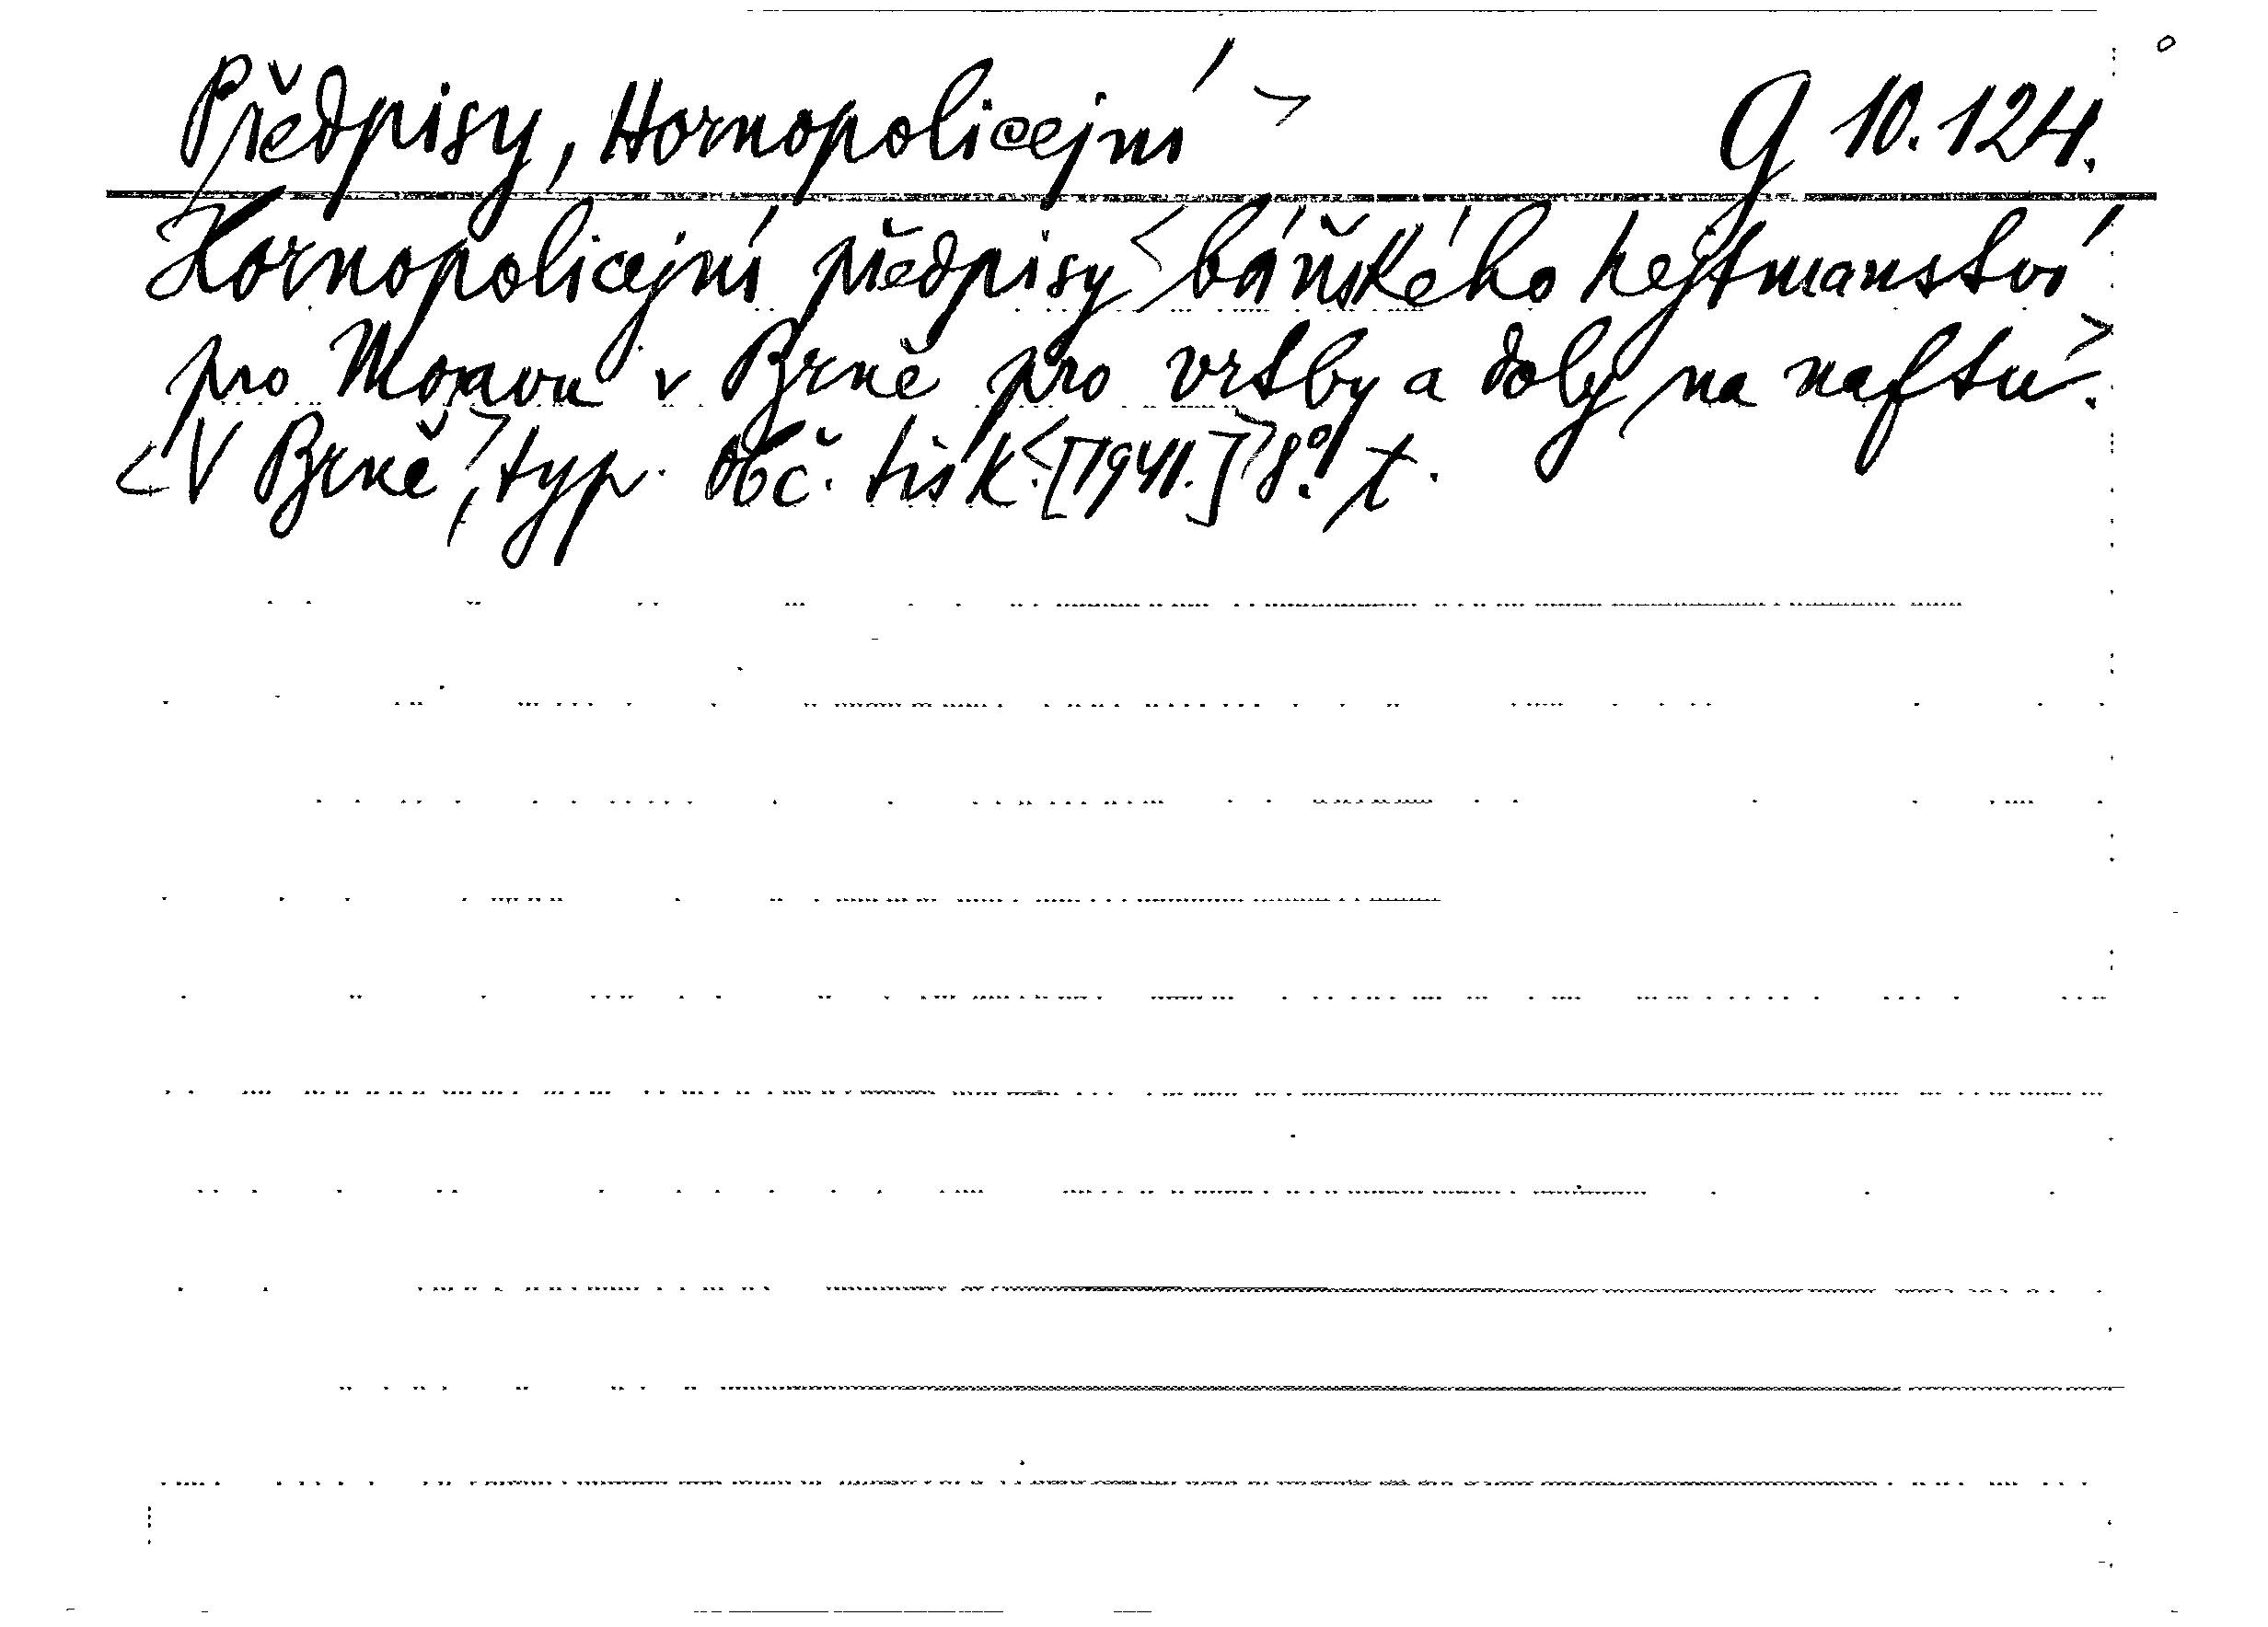 Předpisy, Hornopolicejní > G 10.124.
Hornopolicejní předpisy <báňského hejtmanství
pro Moravu v Brně pro vrtby a doly na naftu>.
<V Brně>, typ. Obč. tisk. <[1941.]> 8°.